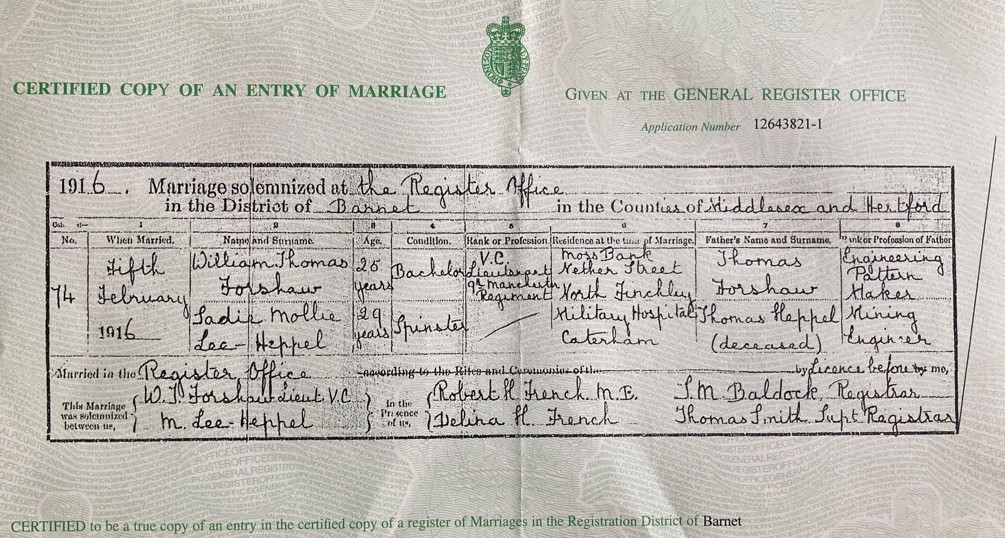 CERTIFIED COPY OF AN ENTRY OF MARRIAGE
GIVEN AT THE GENERAL REGISTER OFFICE
Application Number 12643821-1
1916. Marriage solemnized at the Register Office
in the District of Barnet in the Counties of Middlesex and Hertford
No. When Married. Name and Surname. Age. Condition. Rank or Profession. Residence at the time of Marriage. Father's Name and Surname. Rank or Profession of Father
74
Fifth
February
1916
William Thomas
Forshaw
25
years
Bachelor
V.C.
Lieutenant
9th Manchester
Regiment
Moss Bank
Nether Street
North Finchley
Thomas
Forshaw
Engineering
Pattern
Maker
Sadie Mollie
Lee-Heppel
29
years
Spinster
Military Hospital
Caterham
Thomas Heppel
(deceased)
Mining
Engineer
Married in the Register Office according to the Rites and Ceremonies of the by licence before by me,
This Marriage
was solemnized
between us,
W. T. Forshaw Lieut. V.C.
M. Lee-Heppel
in the
Presence
of us,
Robert H. French M.E.
Delina H. French
J.M. Baldock, Registrar
Thomas Smith Supt Registrar
CERTIFIED to be a true copy of an entry in the certified copy of a register of Marriages in the Registration District of Barnet